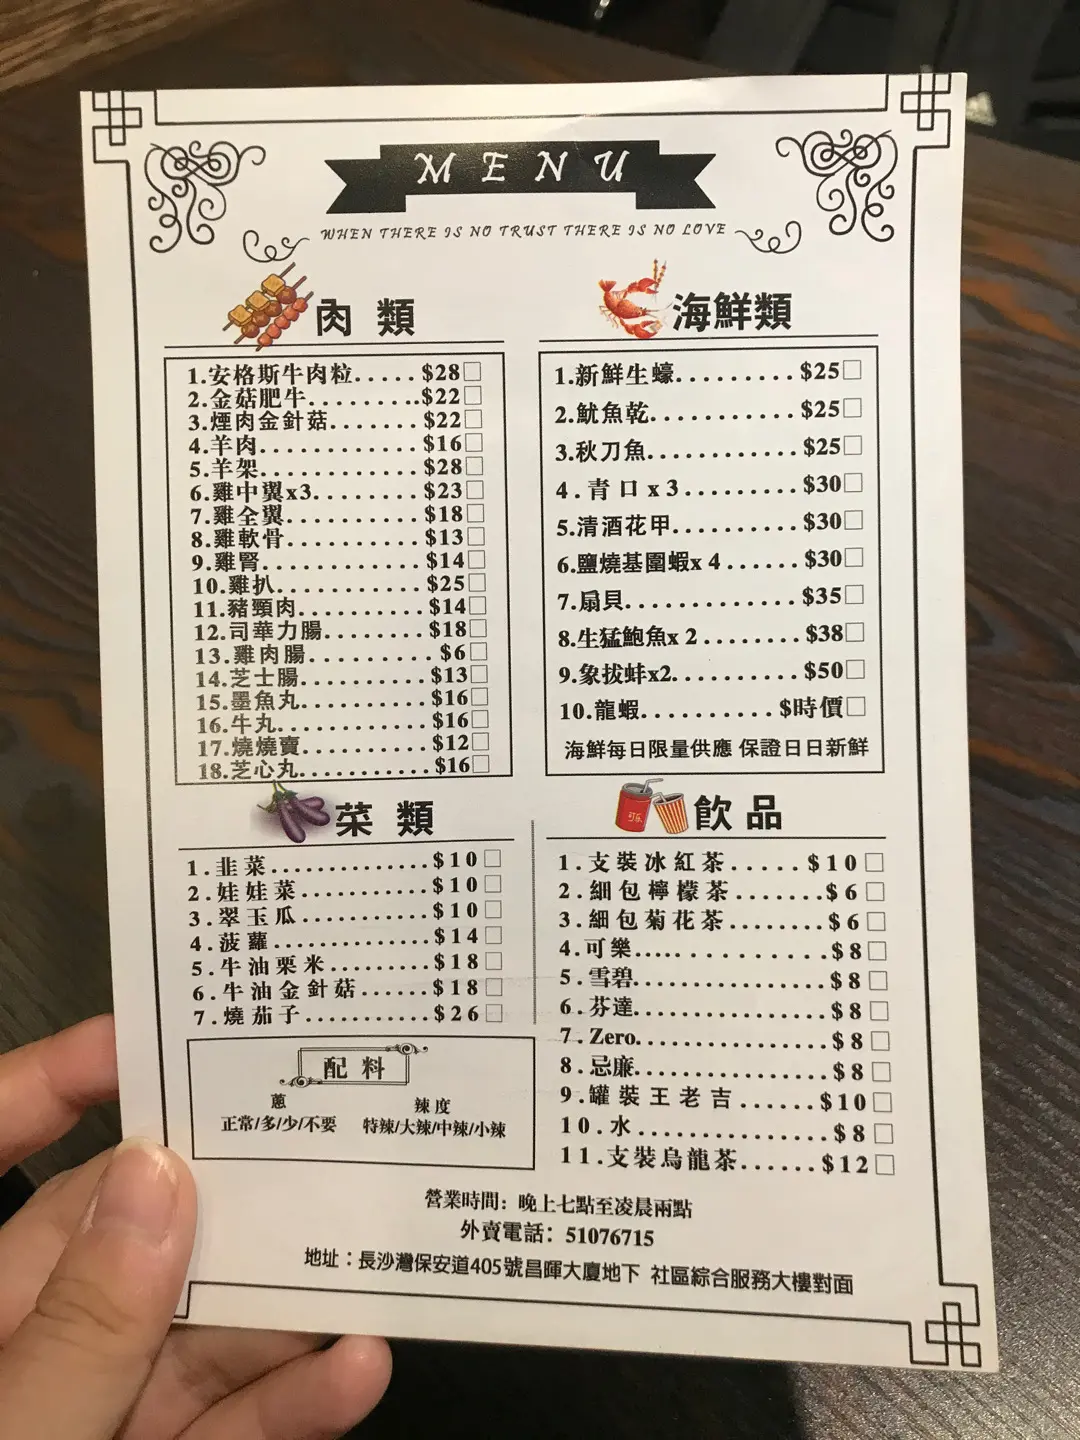 MENU
WHEN THERE IS NO TRUST THERE IS NO LOVE
肉類
1.安格斯牛肉粒.....$28□
2.金菇肥牛.........$22□
3.煙肉金針菇.......$22□
4.羊肉............$16□
5.羊架............$28□
6.雞中翼x3........$23□
7.雞全翼..........$18□
8.雞軟骨..........$13□
9.雞腎............$14□
10.雞扒...........$25□
11.豬頸肉.........$14□
12.司華力腸.......$18□
13.雞肉腸.........$6□
14.芝士腸.........$13□
15.墨魚丸.........$16□
16.牛丸...........$16□
17.燒燒賣.........$12□
18.芝心丸.........$16□
海鮮類
1.新鮮生蠔.........$25□
2.魷魚乾...........$25□
3.秋刀魚...........$25□
4.青口x3.........$30□
5.清酒花甲.........$30□
6.鹽燒基圍蝦x4......$30□
7.扇貝.............$35□
8.生猛鮑魚x2.......$38□
9.象拔蚌x2.........$50□
10.龍蝦..........$時價□
海鮮每日限量供應 保證日日新鮮
菜類
1.韭菜.............$10□
2.娃娃菜...........$10□
3.翠玉瓜...........$10□
4.菠蘿.............$14□
5.牛油粟米.........$18□
6.牛油金針菇......$18□
7.燒茄子..........$26□
飲品
1.支裝冰紅茶.....$10□
2.細包檸檬茶.......$6□
3.細包菊花茶........$6□
4.可樂..... ..........$8□
5.雪碧................$8□
6.芬達................$8□
7.Zero................$8□
8.忌廉................$8□
9.罐裝王老吉......$10□
10.水...............$8□
11.支裝烏龍茶......$12□
配料
蔥 辣度
正常/多/少/不要 特辣/大辣/中辣/小辣
營業時間：晚上七點至凌晨兩點
外賣電話：51076715
地址：長沙灣保安道405號昌暉大廈地下 社區綜合服務大樓對面